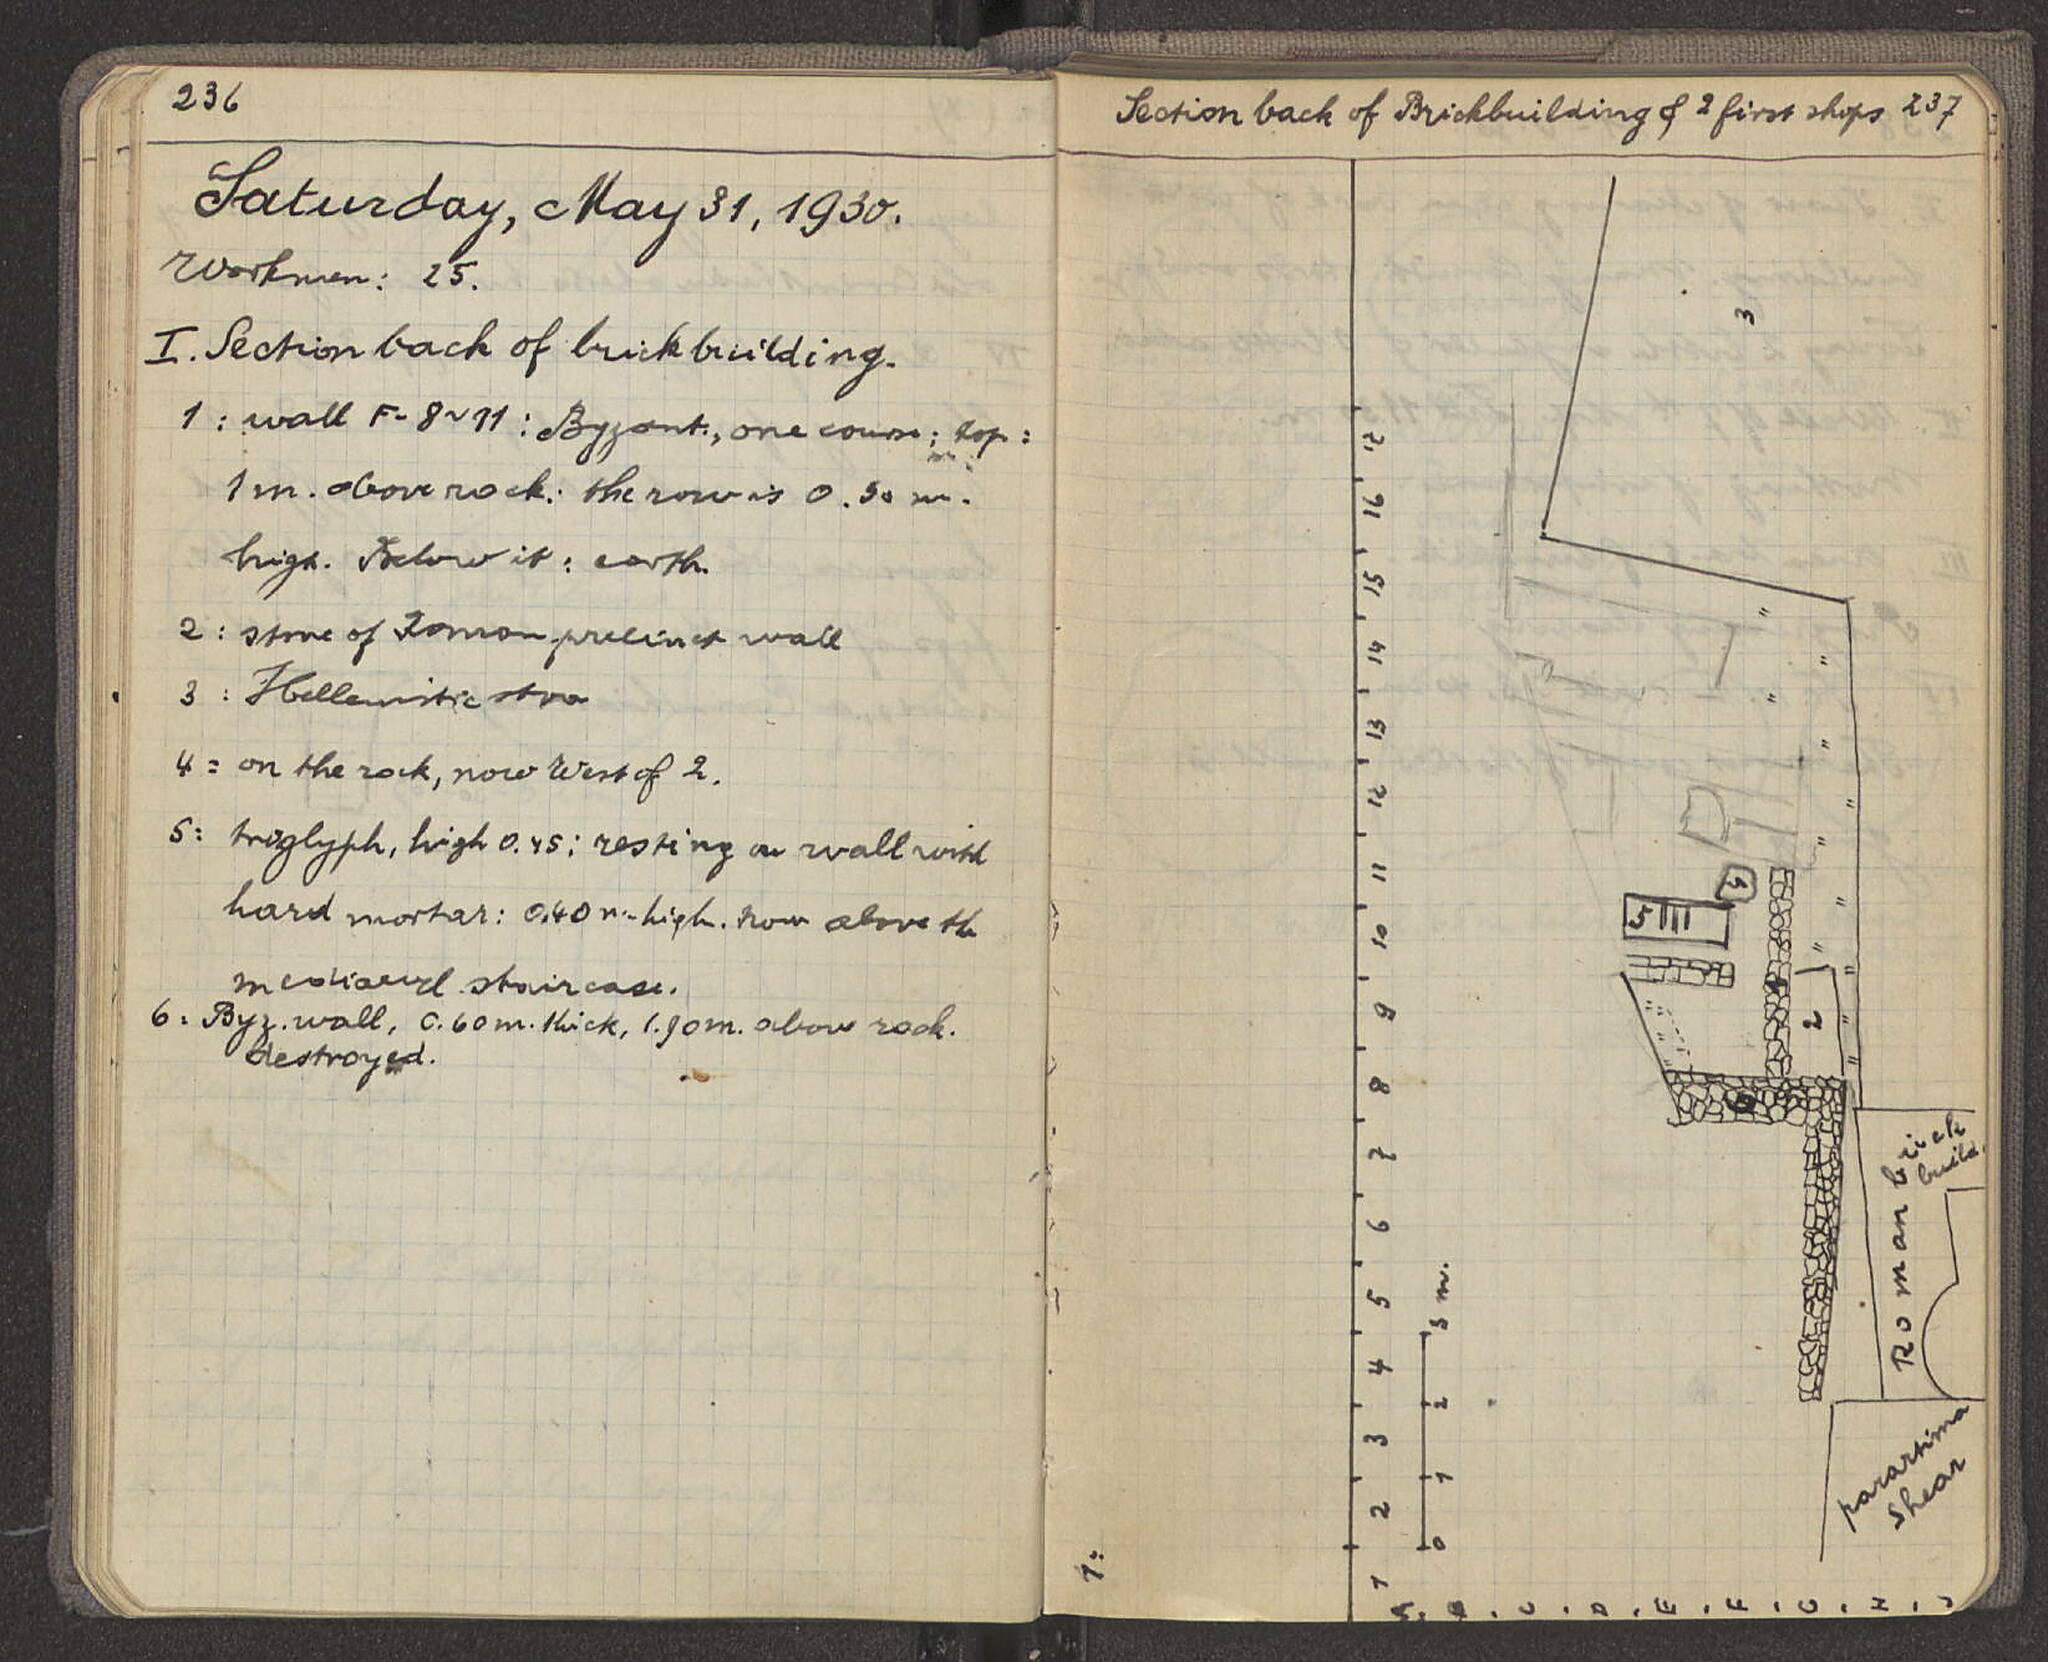 236
Saturday, May 31, 1930.
Workmen: 25.
I. Section back of brickbuilding.
1: wall F-8~11: Byzant., one course; top:
1 m. above rock: the row is 0.50 m.
high. Below it: earth.
2: stone of Roman precinct wall
3: Hellenistic stoa
4: on the rock, now West of 2.
5: triglyph, high 0.45; resting on wall with
hard mortar: 0.40 m. high. now above the
mediaeval staircase.
6: Byz. wall, 0.60 m. thick, 1.90 m. above rock.
destroyed.
Section back of Brickbuilding & 2 first shops 237
3
17
16
15
14
13
12
11
10
9
8
7
6
5
4
3
2
1
5
1
2
3 m.
2
1
0
Roman brick
build.
parartima
Shear
1:
A. B. C. D. E. F. G. H. J